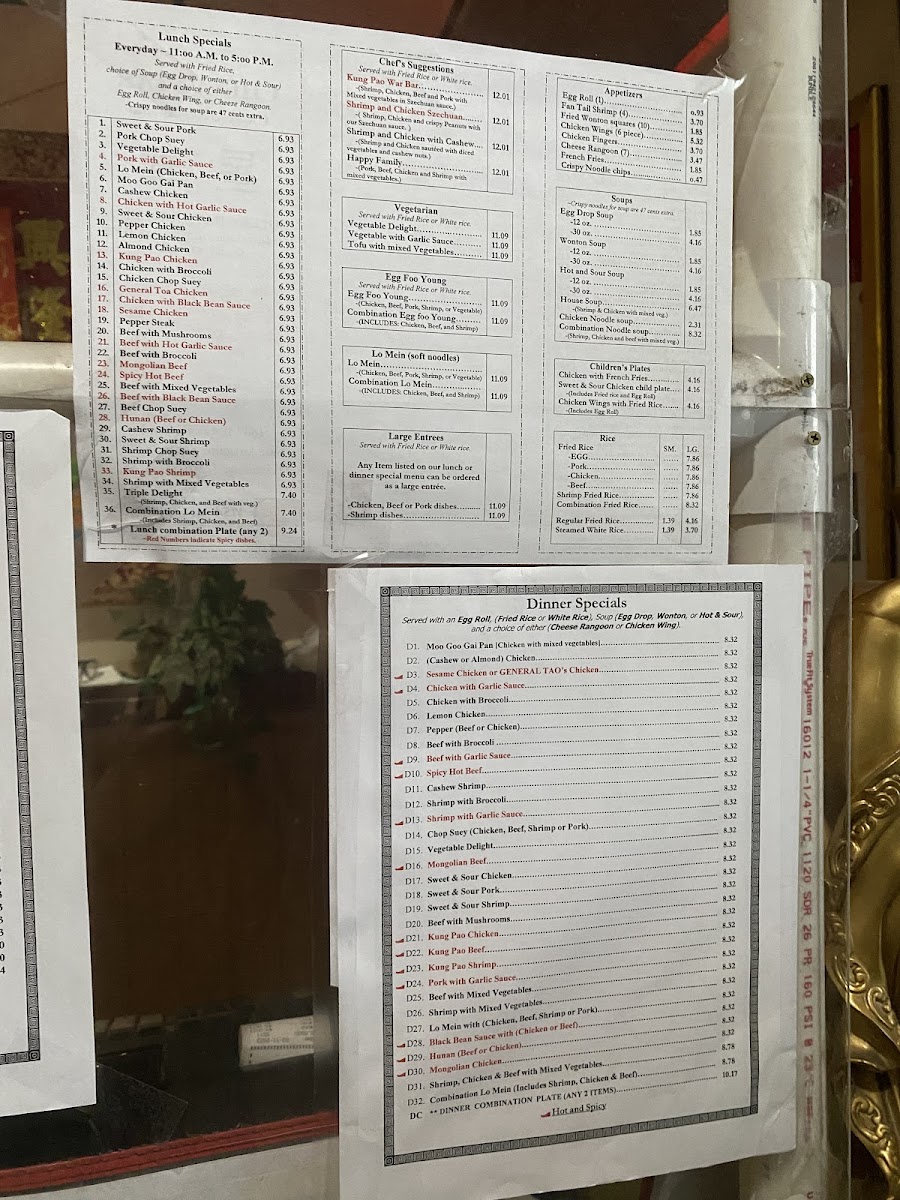 Lunch Specials
Everyday – 11:00 A.M. to 5:00 P.M.
Served with Fried Rice,
choice of Soup (Egg Drop, Wonton, or Hot & Sour)
and a choice of either
Egg Roll, Chicken Wing, or Cheese Rangoon.
-Crispy noodles for soup are 47 cents extra.
1. Sweet & Sour Pork 6.93
2. Pork Chop Suey 6.93
3. Vegetable Delight 6.93
4. Pork with Garlic Sauce 6.93
5. Lo Mein (Chicken, Beef, or Pork) 6.93
6. Moo Goo Gai Pan 6.93
7. Cashew Chicken 6.93
8. Chicken with Hot Garlic Sauce 6.93
9. Sweet & Sour Chicken 6.93
10. Pepper Chicken 6.93
11. Lemon Chicken 6.93
12. Almond Chicken 6.93
13. Kung Pao Chicken 6.93
14. Chicken with Broccoli 6.93
15. Chicken Chop Suey 6.93
16. General Toa Chicken 6.93
17. Chicken with Black Bean Sauce 6.93
18. Sesame Chicken 6.93
19. Pepper Steak 6.93
20. Beef with Mushrooms 6.93
21. Beef with Hot Garlic Sauce 6.93
22. Beef with Broccoli 6.93
23. Mongolian Beef 6.93
24. Spicy Hot Beef 6.93
25. Beef with Mixed Vegetables 6.93
26. Beef with Black Bean Sauce 6.93
27. Beef Chop Suey 6.93
28. Hunan (Beef or Chicken) 6.93
29. Cashew Shrimp 6.93
30. Sweet & Sour Shrimp 6.93
31. Shrimp Chop Suey 6.93
32. Shrimp with Broccoli 6.93
33. Kung Pao Shrimp 6.93
34. Shrimp with Mixed Vegetables 6.93
35. Triple Delight 7.40
-(Shrimp, Chicken, and Beef with veg.)
36. Combination Lo Mein 7.40
-(Includes Shrimp, Chicken, and Beef)
* Lunch combination Plate (any 2) 9.24
~Red Numbers indicate Spicy dishes.
Chef's Suggestions
Served with Fried Rice or White rice.
Kung Pao War Bar 12.01
-(Shrimp, Chicken, Beef and Pork with
Mixed vegetables in Szechuan sauce.)
Shrimp and Chicken Szechuan 12.01
-( Shrimp, Chicken and crispy Peanuts with
our Szechuan sauce. )
Shrimp and Chicken with Cashew 12.01
-(Shrimp and Chicken sautéed with diced
vegetables and cashew nuts.)
Happy Family 12.01
-(Pork, Beef, Chicken and Shrimp with
mixed vegetables.)
Vegetarian
Served with Fried Rice or White rice.
Vegetable Delight 11.09
Vegetable with Garlic Sauce 11.09
Tofu with mixed Vegetables 11.09
Egg Foo Young
Served with Fried Rice or White rice.
Egg Foo Young 11.09
-(Chicken, Beef, Pork, Shrimp, or Vegetable)
Combination Egg foo Young 11.09
-(INCLUDES: Chicken, Beef, and Shrimp)
Lo Mein (soft noodles)
Lo Mein 11.09
-(Chicken, Beef, Pork, Shrimp, or Vegetable)
Combination Lo Mein 11.09
-(INCLUDES: Chicken, Beef, and Shrimp)
Large Entrees
Served with Fried Rice or White rice.
Any Item listed on our lunch or
dinner special menu can be ordered
as a large entrée.
-Chicken, Beef or Pork dishes 11.09
-Shrimp dishes 11.09
Appetizers
Egg Roll (1) 0.93
Fan Tail Shrimp (4) 3.70
Fried Wonton squares (10) 1.85
Chicken Wings (6 piece) 8.32
Chicken Fingers 3.70
Cheese Rangoon (7) 3.47
French Fries 1.85
Crispy Noodle chips 0.47
Soups
~Crispy noodles for soup are 47 cents extra.
Egg Drop Soup
-12 oz. 1.85
-30 oz. 4.16
Wonton Soup
-12 oz. 1.85
-30 oz. 4.16
Hot and Sour Soup
-12 oz. 1.85
-30 oz. 4.16
House Soup 6.47
-(Shrimp & Chicken with mixed veg.)
Chicken Noodle soup 2.31
Combination Noodle soup 8.32
-(Shrimp, Chicken and beef with mixed veg.)
Children's Plates
Chicken with French Fries 4.16
Sweet & Sour Chicken child plate 4.16
-(Includes Fried rice and Egg Roll)
Chicken Wings with Fried Rice 4.16
-(Includes Egg Roll)
Rice
Fried Rice SM. LG.
-EGG 7.86
-Pork 7.86
-Chicken 7.86
-Beef 7.86
Shrimp Fried Rice 7.86
Combination Fried Rice 8.32
Regular Fried Rice 1.39 4.16
Steamed White Rice 1.39 3.70
Dinner Specials
Served with an Egg Roll, (Fried Rice or White Rice), Soup (Egg Drop, Wonton, or Hot & Sour),
and a choice of either (Cheese Rangoon or Chicken Wing).
D1. Moo Goo Gai Pan (Chicken with mixed vegetables) 8.32
D2. (Cashew or Almond) Chicken 8.32
D3. Sesame Chicken or GENERAL TAO's Chicken 8.32
D4. Chicken with Garlic Sauce 8.32
D5. Chicken with Broccoli 8.32
D6. Lemon Chicken 8.32
D7. Pepper (Beef or Chicken) 8.32
D8. Beef with Broccoli 8.32
D9. Beef with Garlic Sauce 8.32
D10. Spicy Hot Beef 8.32
D11. Cashew Shrimp 8.32
D12. Shrimp with Broccoli 8.32
D13. Shrimp with Garlic Sauce 8.32
D14. Chop Suey (Chicken, Beef, Shrimp or Pork) 8.32
D15. Vegetable Delight 8.32
D16. Mongolian Beef 8.32
D17. Sweet & Sour Chicken 8.32
D18. Sweet & Sour Pork 8.32
D19. Sweet & Sour Shrimp 8.32
D20. Beef with Mushrooms 8.32
D21. Kung Pao Chicken 8.32
D22. Kung Pao Beef 8.32
D23. Kung Pao Shrimp 8.32
D24. Pork with Garlic Sauce 8.32
D25. Beef with Mixed Vegetables 8.32
D26. Shrimp with Mixed Vegetables 8.32
D27. Lo Mein with (Chicken, Beef, Shrimp or Pork) 8.32
D28. Black Bean Sauce with (Chicken or Beef) 8.32
D29. Hunan (Beef or Chicken) 8.32
D30. Mongolian Chicken 8.32
D31. Shrimp, Chicken & Beef with Mixed Vegetables 8.78
D32. Combination Lo Mein (Includes Shrimp, Chicken & Beef) 8.78
DC ** DINNER COMBINATION PLATE (ANY 2 ITEMS) 10.17
Hot and Spicy
TrueFit System 16012 1-1/4" PVC 1120 SDR 26 PR 160 PSI @ 23°C